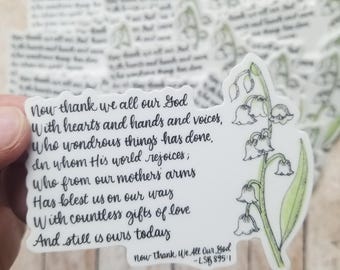 Now thank we all our God
With hearts and hands and voices,
Who wondrous things has done,
In whom His world rejoices;
Who from our mothers' arms
Has blest us on our way
With countless gifts of love
And still is ours today.
Now Thank We All Our God
-LSB 895:1